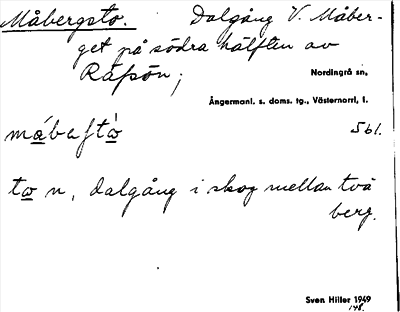 Måbergsto. Dalgång V. Måber-
get på södra hälften av
Råpön;
Nordingrå sn,
Ångermanl. s. doms. tg., Västernorrl. l.
mábaftò 561.
tω n, dalgång i skog mellan två
berg.
Sven Hiller 1949
148.